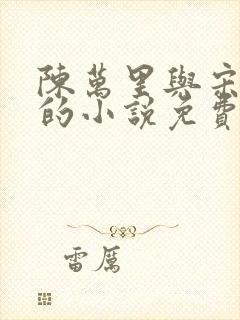 陳萬里與宋
的小說免費
雷厲